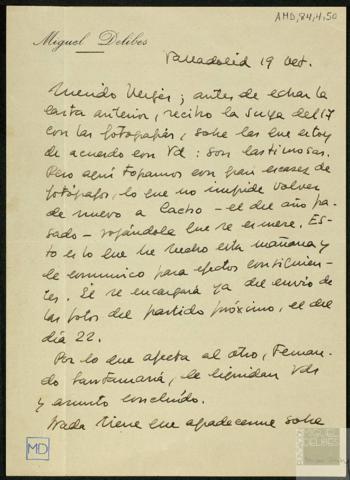 AMD, 84, 4, 50
Miguel Delibes
Valladolid 19 Oct.
Querido Vergés; antes de echar la
carta anterior, recibo la suya del 17
con las fotografías, sobre las que estoy
de acuerdo con Vd: son lastimosas.
Pero aquí topamos con gran escasez de
fotógrafos, lo que no impide volver
de nuevo a Cacho - el del año pa-
sado - rogándole que se esmere. Es-
to es lo que he hecho esta mañana y
le comunico para efectos consiguien-
tes. Él se encargará ya del envío de
las fotos del partido próximo, el del
día 22.
Por lo que afecta al otro, Fernan-
do Santamaría, le liquidan Vds
y asunto concluido.
Nada tiene que agradecerme sobre
MD
MIGUEL
DELIBES